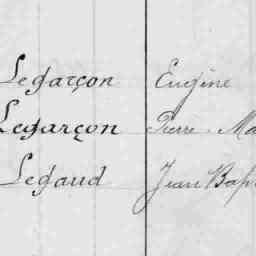 Legarçon Eugène
Legarçon Pierre Ma
Legaud Jean Bap